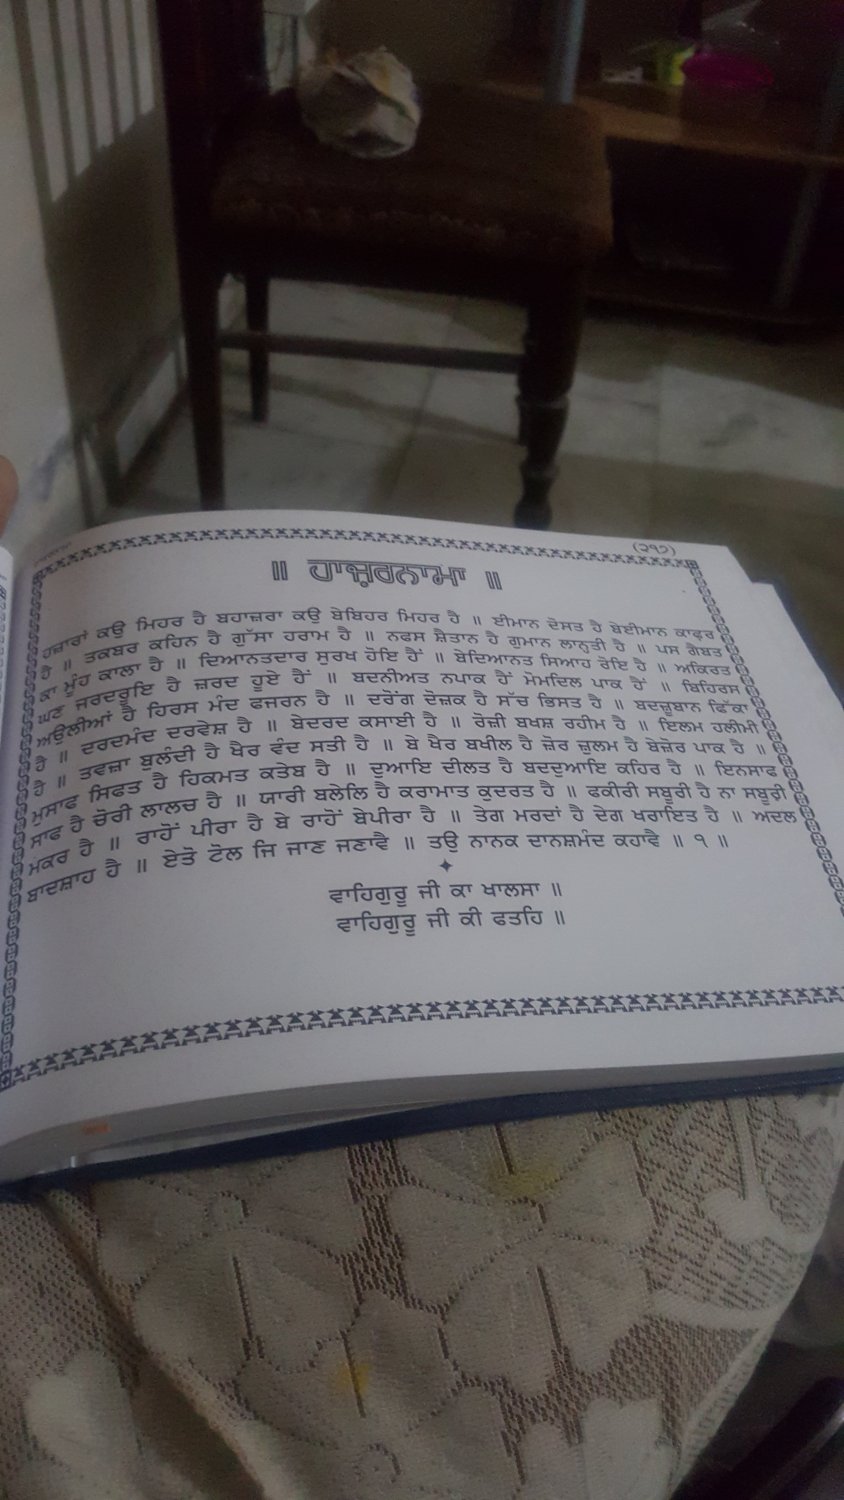 (੨੧੭)
॥ ਹਾਜ਼ਰਨਾਮਾ ॥
ਹਜ਼ਾਰਾਂ ਕਉ ਮਿਹਰ ਹੈ ਬਹਾਜ਼ਰਾ ਕਉ ਬੇਬਿਹਰ ਮਿਹਰ ਹੈ ॥ ਈਮਾਨ ਦੋਸਤ ਹੈ ਬੇਈਮਾਨ ਕਾਫ਼ਰ
ਹੈ ॥ ਤਕਬਰ ਕਹਿਨ ਹੈ ਗੁੱਸਾ ਹਰਾਮ ਹੈ ॥ ਨਫਸ ਸ਼ੈਤਾਨ ਹੈ ਗੁਮਾਨ ਲਾਨ੍ਹਤੀ ਹੈ ॥ ਪਸ ਗੈਬਤ
ਕਾ ਮੂੰਹ ਕਾਲਾ ਹੈ ॥ ਦਿਆਨਤਦਾਰ ਸੁਰਖ ਹੋਇ ਹੈਂ ॥ ਬੇਦਿਆਨਤ ਸਿਆਹ ਰੋਇ ਹੈ ॥ ਅਕਿਰਤ
ਘਣ ਜਰਦਰੂਇ ਹੈ ਜ਼ਰਦ ਹੂਏ ਹੈਂ ॥ ਬਦਨੀਅਤ ਨਪਾਕ ਹੈਂ ਮੋਮਦਿਲ ਪਾਕ ਹੈਂ ॥ ਬਿਹਿਰਸ
ਅਉਲੀਆਂ ਹੈ ਹਿਰਸ ਮੰਦ ਫਜਰਨ ਹੈ ॥ ਦਰੋਂਗ ਦੋਜ਼ਕ ਹੈ ਸੱਚ ਭਿਸਤ ਹੈ ॥ ਬਦਜ਼ੁਬਾਨ ਫਿੱਕਾ
ਹੈ ॥ ਦਰਦਮੰਦ ਦਰਵੇਸ਼ ਹੈ ॥ ਬੇਦਰਦ ਕਸਾਈ ਹੈ ॥ ਰੋਜ਼ੀ ਬਖਸ਼ ਰਹੀਮ ਹੈ ॥ ਇਲਮ ਹਲੀਮੀ
ਹੈ ॥ ਤਵਜ਼ਾ ਬੁਲੰਦੀ ਹੈ ਖੈਰ ਵੰਦ ਸਤੀ ਹੈ ॥ ਬੇ ਖੈਰ ਬਖੀਲ ਹੈ ਜ਼ੋਰ ਜ਼ੁਲਮ ਹੈ ਬੇਜ਼ੋਰ ਪਾਕ ਹੈ ॥
ਮੁਸਾਫ ਸਿਫਤ ਹੈ ਹਿਕਮਤ ਕਤੇਬ ਹੈ ॥ ਦੁਆਇ ਦੌਲਤ ਹੈ ਬਦਦੁਆਇ ਕਹਿਰ ਹੈ ॥ ਇਨਸਾਫ
ਸਾਫ ਹੈ ਚੋਰੀ ਲਾਲਚ ਹੈ ॥ ਯਾਰੀ ਬਲੇਲਿ ਹੈ ਕਰਾਮਾਤ ਕੁਦਰਤ ਹੈ ॥ ਫਕੀਰੀ ਸਬੂਰੀ ਹੈ ਨਾ ਸਬੂਰੀ
ਮਕਰ ਹੈ ॥ ਰਾਹੋਂ ਪੀਰਾ ਹੈ ਬੇ ਰਾਹੋਂ ਬੇਪੀਰਾ ਹੈ ॥ ਤੇਗ ਮਰਦਾਂ ਹੈ ਦੇਗ ਖਰਾਇਤ ਹੈ ॥ ਅਦਲ
ਬਾਦਸ਼ਾਹ ਹੈ ॥ ਏਤੇ ਟੋਲ ਜਿ ਜਾਣ ਜਣਾਵੈ ॥ ਤਉ ਨਾਨਕ ਦਾਨਸ਼ਮੰਦ ਕਹਾਵੈ ॥ ੧ ॥
ਵਾਹਿਗੁਰੂ ਜੀ ਕਾ ਖਾਲਸਾ ॥
ਵਾਹਿਗੁਰੂ ਜੀ ਕੀ ਫਤਹਿ ॥